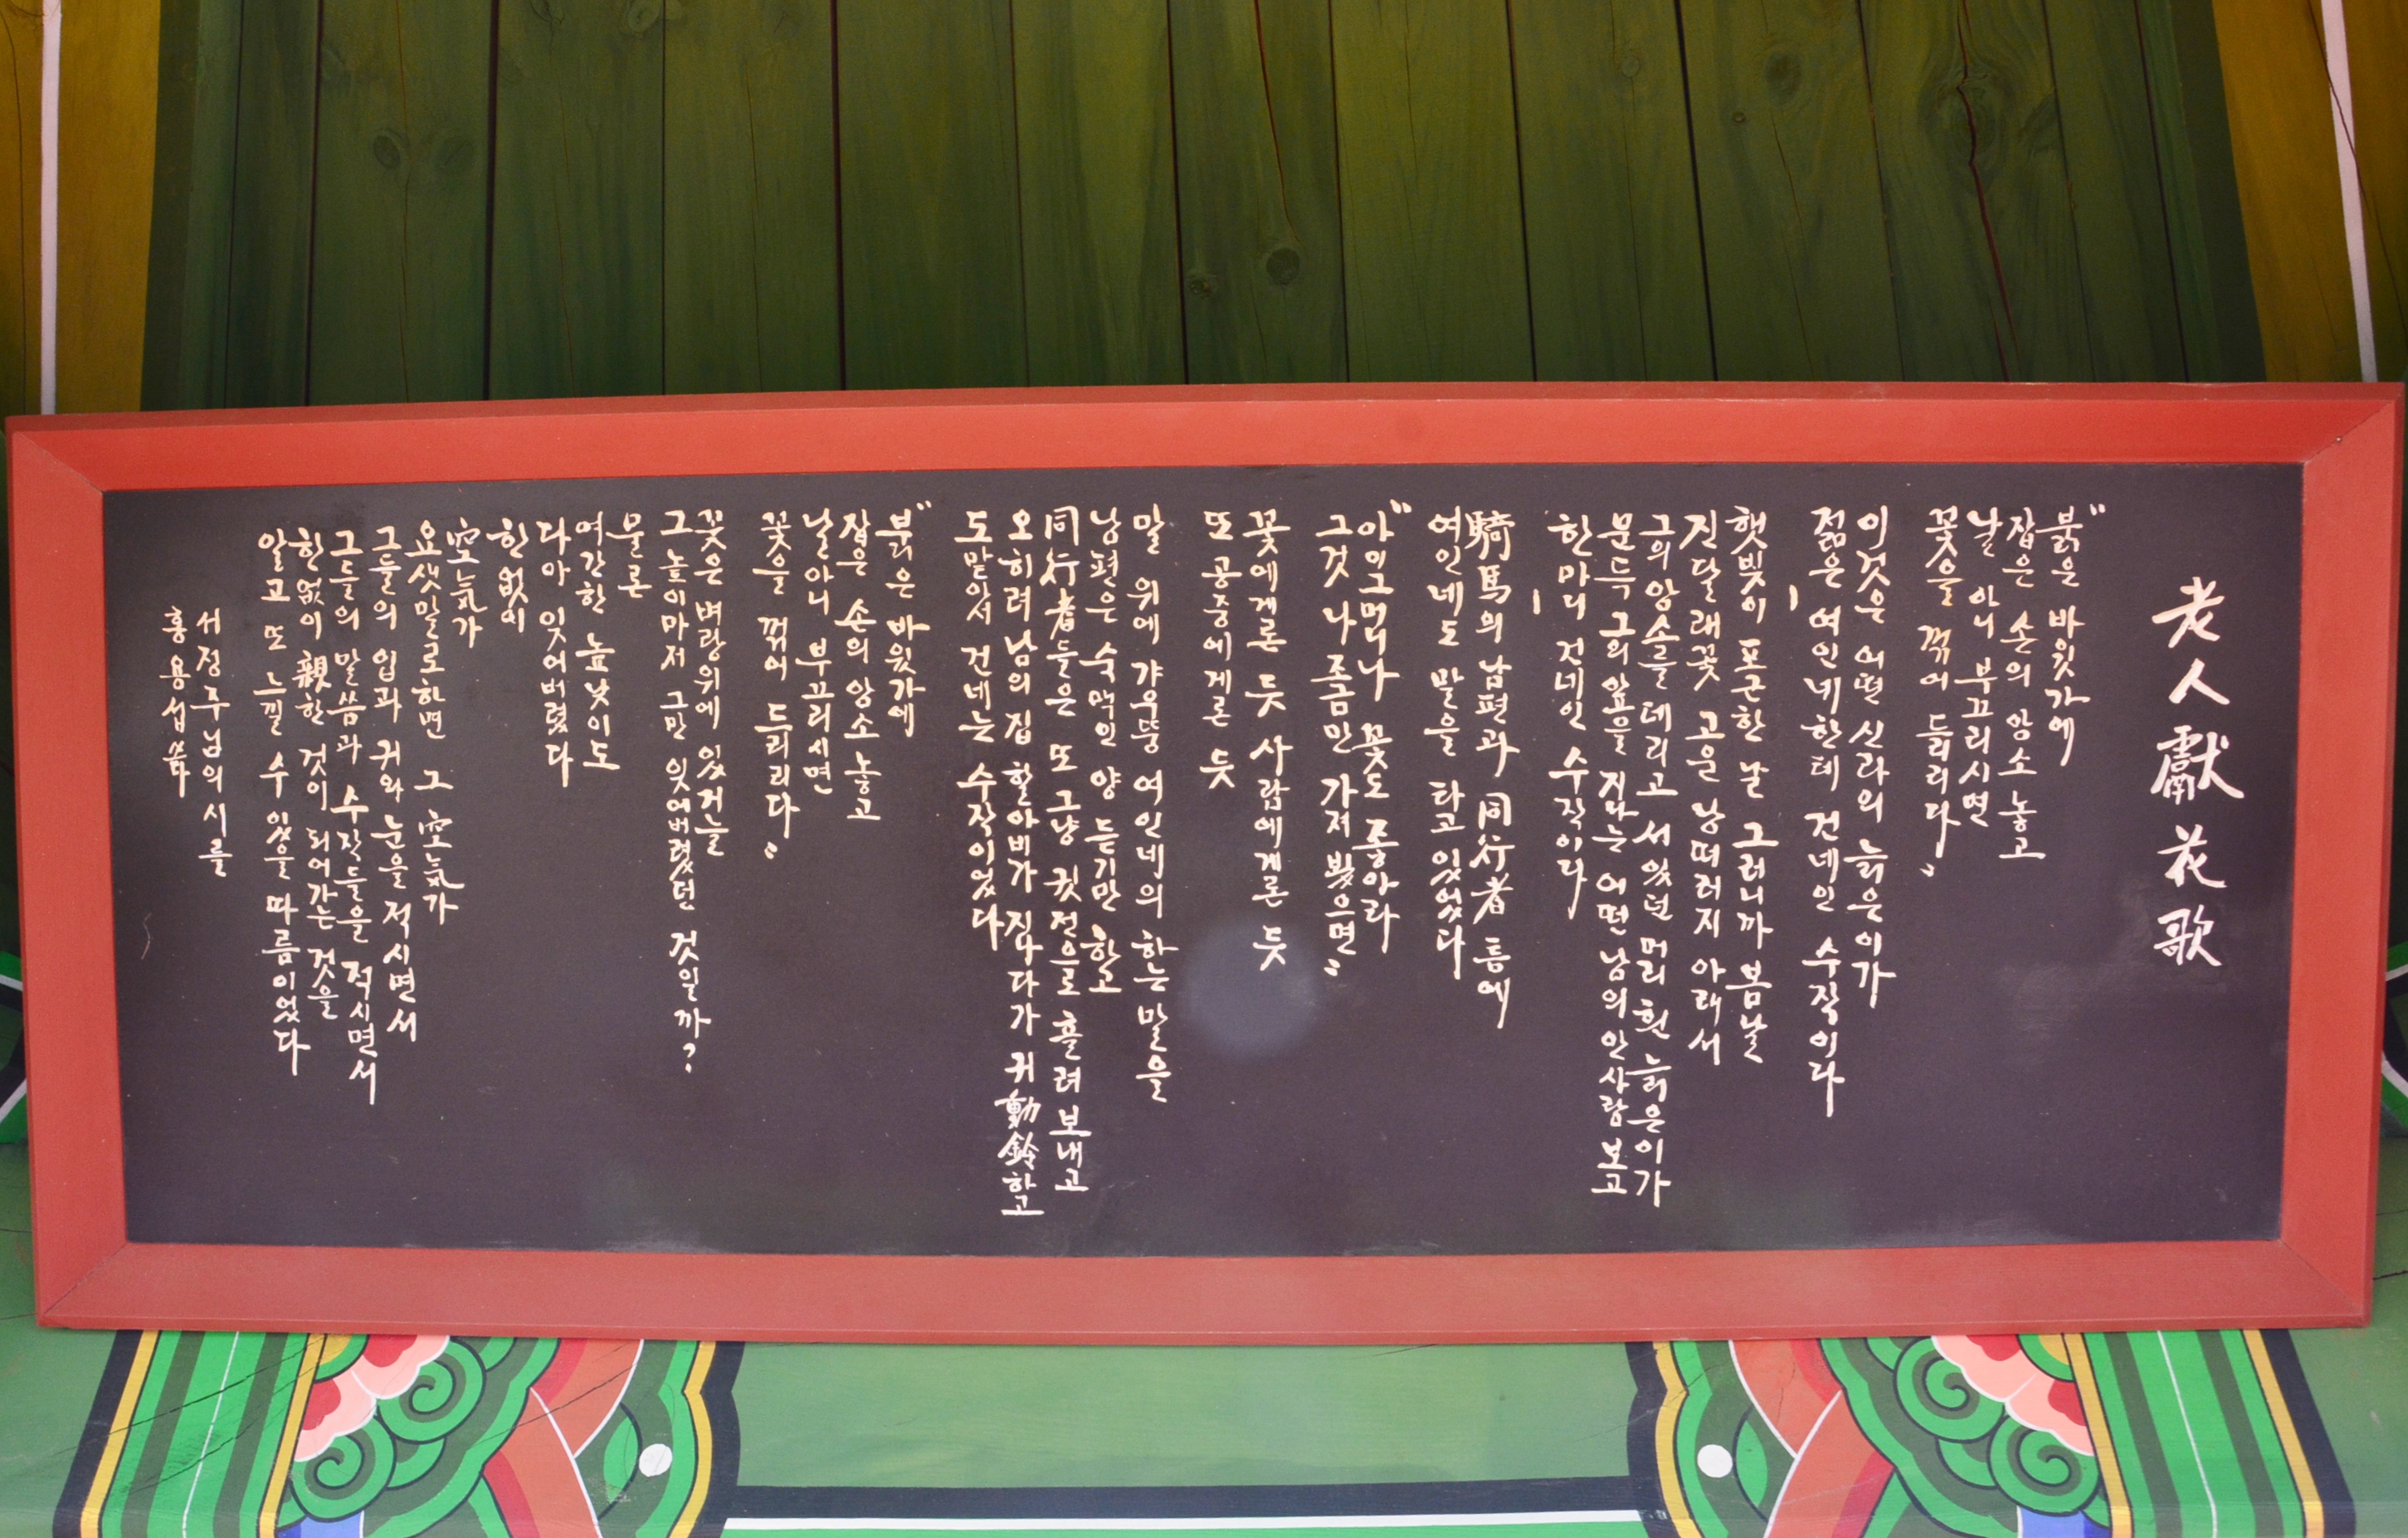 老人獻花歌
"붉은 바윗가에
잡은 손의 암소 놓고
날 아니 부끄리시면
꽃을 꺾어 드리리다"
이것은 어떤 신라의 늙은이가
젊은 여인네한테 건네인 수작이다
햇빛이 포근한 날 그러니까 봄날
진달래꽃 고운 낭떠러지 아래서
그의 암소를 데리고 서있던 머리 흰 늙은이가
문득 그의 앞을 지나는 어떤 남의 안사람 보고
한마디 건네인 수작이다
騎馬의 남편과 同行者 틈에
여인네도 말을 타고 있었다
"아이그머니나 꽃도 좋아라
그것 나 좀만 가져 봤으면"
꽃에게론 듯 사람에게론 듯
또 공중에게론 듯
말 위에 갸우뚱 여인네의 하는 말을
남편은 숙맥인 양 듣기만 하고
同行者들은 또 그냥 귓전으로 흘려 보내고
오히려 남의 집 할아비가 지나다가 귀動鈴하고
도맡아서 건네는 수작이었다
"붉은 바윗가에
잡은 손의 암소 놓고
날 아니 부끄리시면
꽃을 꺾어 드리리다"
꽃은 벼랑위에 있거늘
그 높이마저 그만 잊어버렸던 것일까?
물론
여간한 높낮이도
다아 잊어버렸다
한없이
空氣가
요샛말로하면 그 空氣가
그들의 입과 귀와 눈을 적시면서
그들의 말씀과 수작들을 적시면서
한없이 親한 것이 되어가는 것을
알고 또 느낄 수 있을 따름이었다
서정주님의 시를
홍용섭 씀